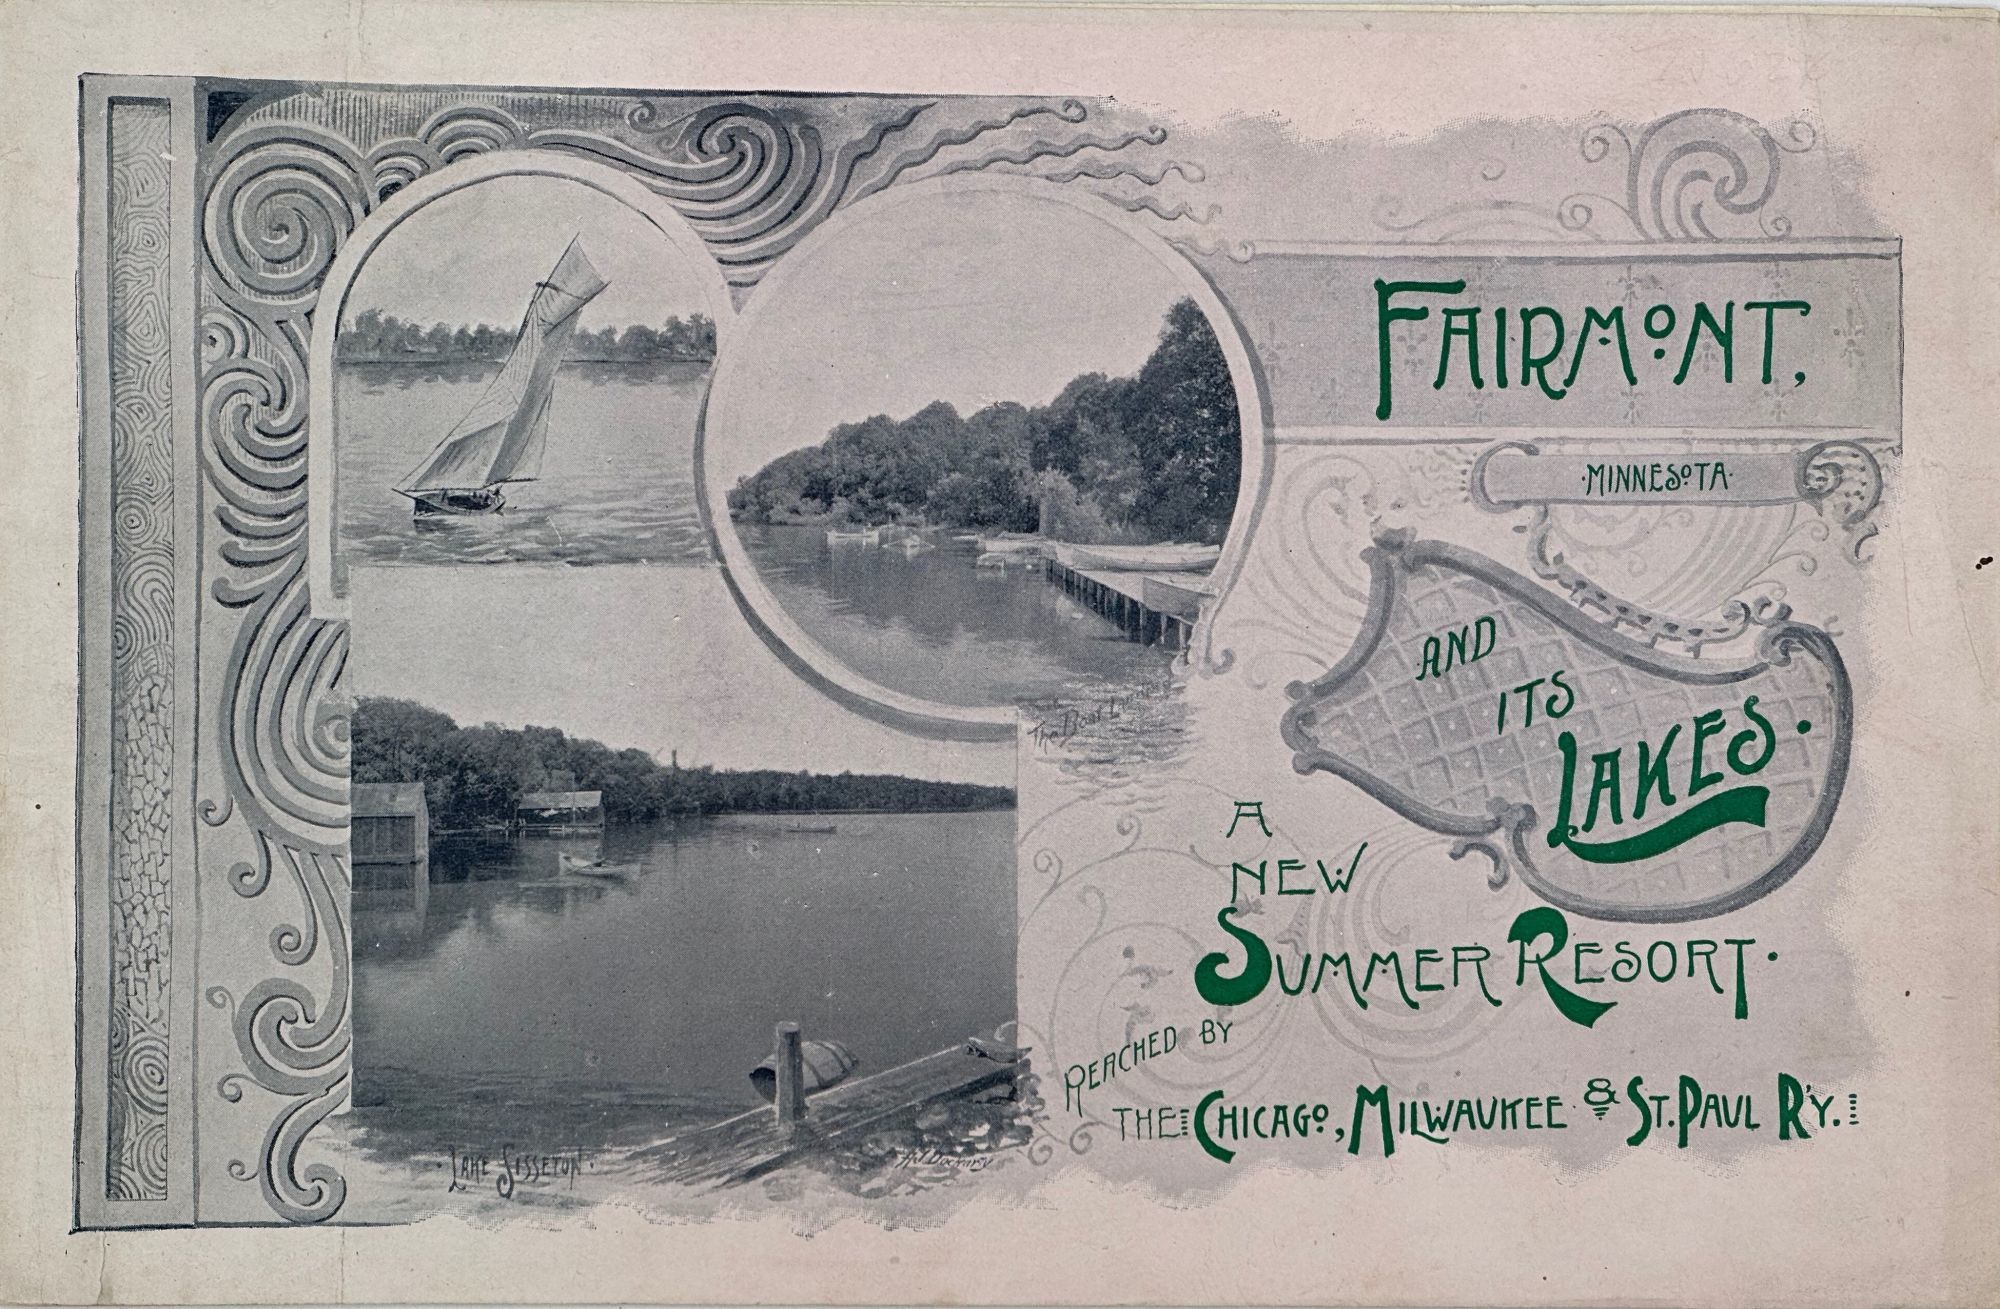 FAIRMONT,
·MINNESOTA·
AND
ITS
LAKES·
A
NEW
SUMMER RESORT·
REACHED BY
THE CHICAGO, MILWAUKEE & ST. PAUL R'Y.
The Boat
·LAKE SISSETON·